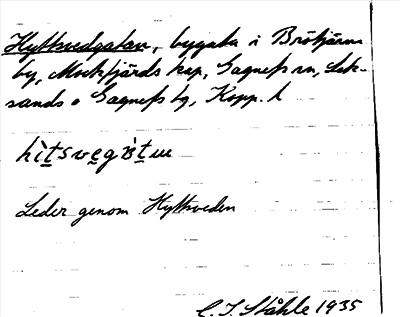 Hyttvedgatan, bygata i Brötjärna
by, Mockfjärds kap, Gagnefs sn, Lek-
sands o Gagnefs tg, Kopp. l
Leder genom Hyttveden
C. I. Ståhle 1935